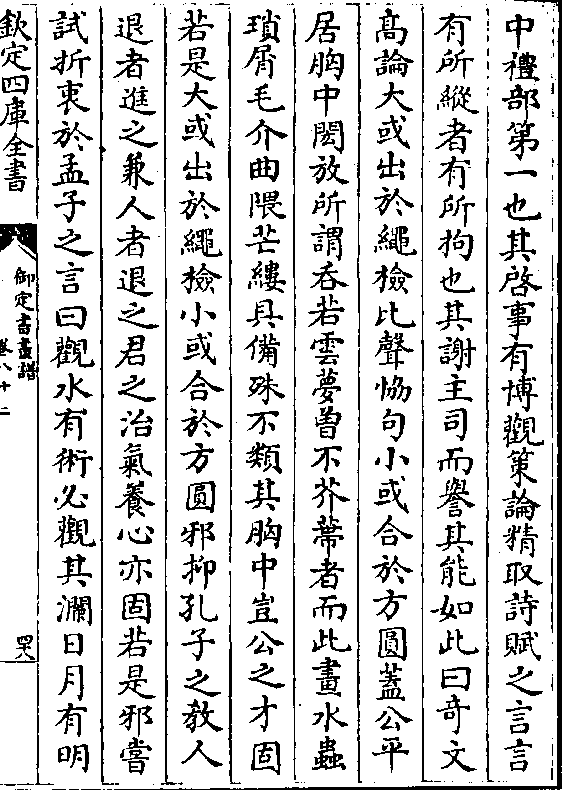 中禮部第一也其啓事有博觀策論精取詩賦之言言
有所縱者有所拘也其謝主司而譽其能如此曰奇文
髙論大或出於繩檢比聲恊句小或合於方圓蓋公平
居胸中閎放所謂吞若雲夢曽不芥蔕者而此畫水蟲
瑣屑毛介曲隈芒縷具備殊不類其胸中豈公之才固
若是大或出於繩檢小或合於方圓邪抑孔子之教人
退者進之兼人者退之君之治氣養心亦固若是邪嘗
試折衷於孟子之言曰觀水有術必觀其瀾日月有明
欽定四庫全書
御定書畫譜
卷八十二